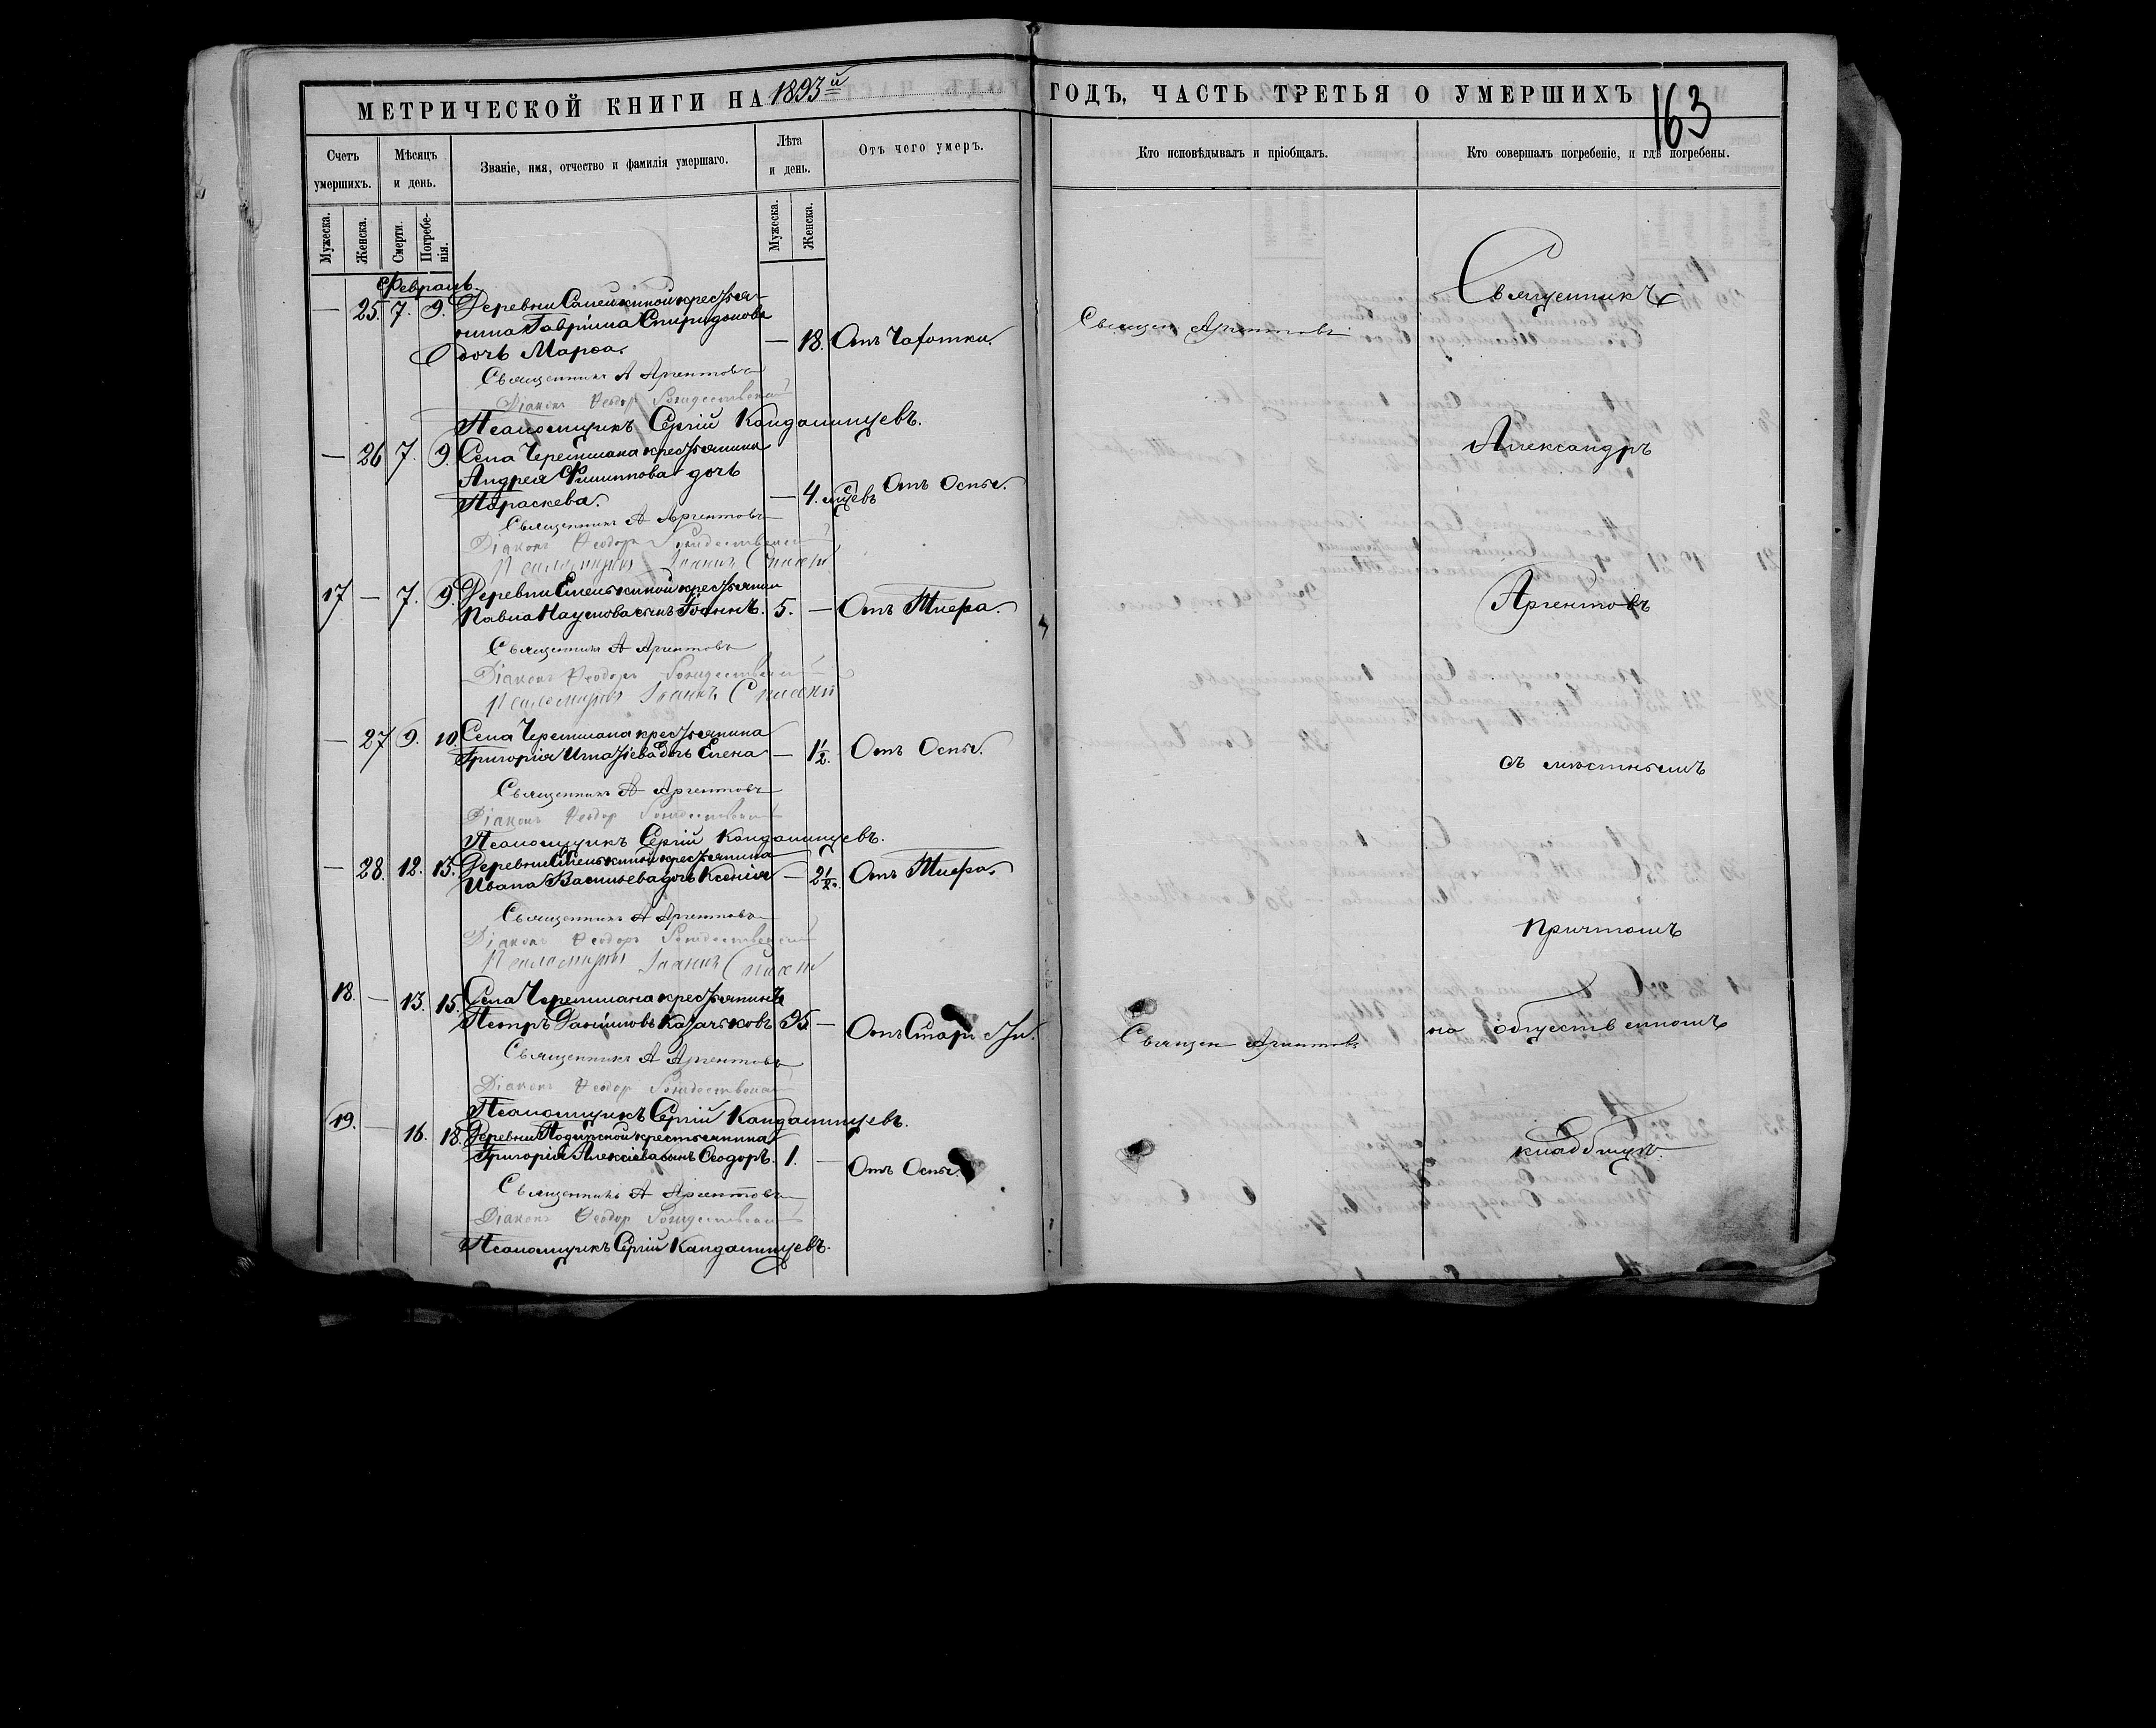 МЕТРИЧЕСКОЙ КНИГИ НА 1893й ГОДЪ, ЧАСТЬ ТРЕТЬЯ О УМЕРШИХЪ
163
Счетъ умершихъ.
Мѣсяцъ и день.
Званіе, имя, отчество и фамилія умершаго.
Лѣта и день.
Отъ чего умеръ.
Кто исповѣдывалъ и пріобщалъ.
Кто совершалъ погребеніе, и гдѣ погребены.
Мужеска.
Женска.
Смерти.
Погребе-
нія.
Мужеска.
Женска.
Февраль
— 25. 7. 9. Деревни крестья-
нина Гавріила Спиридонова
дочь Марѳа. — 18. Отъ Чахотки. Священ Аргентовъ
Священникъ А Аргентовъ
Діаконъ Ѳеодоръ Рождественскій
Псаломщикъ Сергій Кандалинцевъ.
— 26 7. 9. Села Черемшана крестьянина
Андрея Филиппова дочь
Параскева. — 4. мцевъ Отъ Оспы.
Священникъ А Аргентовъ
Діаконъ Ѳеодоръ Рождественскій
Псаломщикъ Іоаннъ
17 — 7. 9. Деревни Емелькиной крестьянина
Павла Наумова сынъ Іоаннъ. 5. — Отъ Тифа.
Священникъ А Аргентовъ
Діаконъ Ѳеодоръ Рождественскій
Псаломщикъ Іоаннъ
— 27 9. 10. Села Черемшана крестьянина
Григорія Игнатіева дочь Елена — 1½. Отъ Оспы.
Священникъ А Аргентовъ
Діаконъ Ѳеодоръ Рождественскій
Псаломщикъ Сергій Кандалинцевъ.
— 28. 12. 15. Деревни Емелькиной крестьянина
Ивана Васильева дочь Ксенія — 2½. Отъ Тифа.
Священникъ А Аргентовъ
Діаконъ Ѳеодоръ Рождественскій
Псаломщикъ Іоаннъ
18. — 13. 15. Села Черемшана крестьянинъ
Петръ Даніиловъ Казачковъ 95 — Отъ Старости. Священ Аргентовъ
Священникъ А Аргентовъ
Діаконъ Ѳеодоръ Рождественскій
Псаломщикъ Сергій Кандалинцевъ.
19. — 16. 18. Деревни крестьянина
Григорія Алексіева сынъ Ѳеодоръ. 1. — Отъ Оспы.
Священникъ А Аргентовъ
Діаконъ Ѳеодоръ Рождественскій
Псаломщикъ Сергій Кандалинцевъ.
Священникъ
Александръ
Аргентовъ
съ мѣстнымъ
причтомъ
на общественномъ
кладбищѣ.